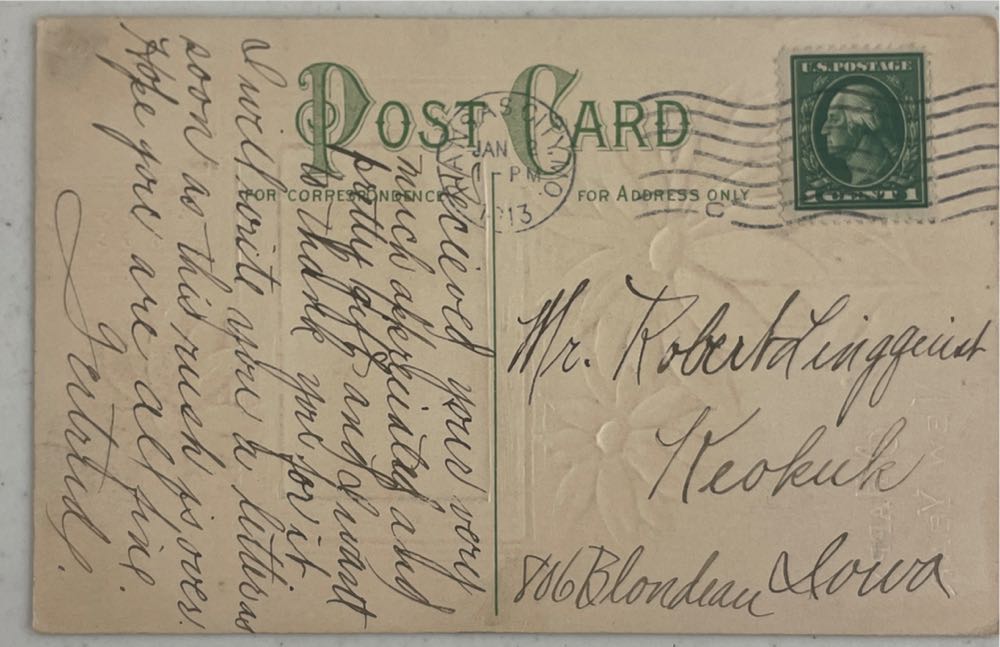 POST CARD
FOR CORRESPONDENCE
FOR ADDRESS ONLY
KANSAS CITY, MO.
JAN 2
1 - PM
1913
C
U.S. POSTAGE
1 CENT 1
Recieved your very
much appreciated and
pretty gift and I want
to thank you for it
I will write you a letter as
soon as this rush is over.
Hope you are all fine.
Gertrud.
Mr. Robert Lingquist
Keokuk
806 Blondeau Iowa